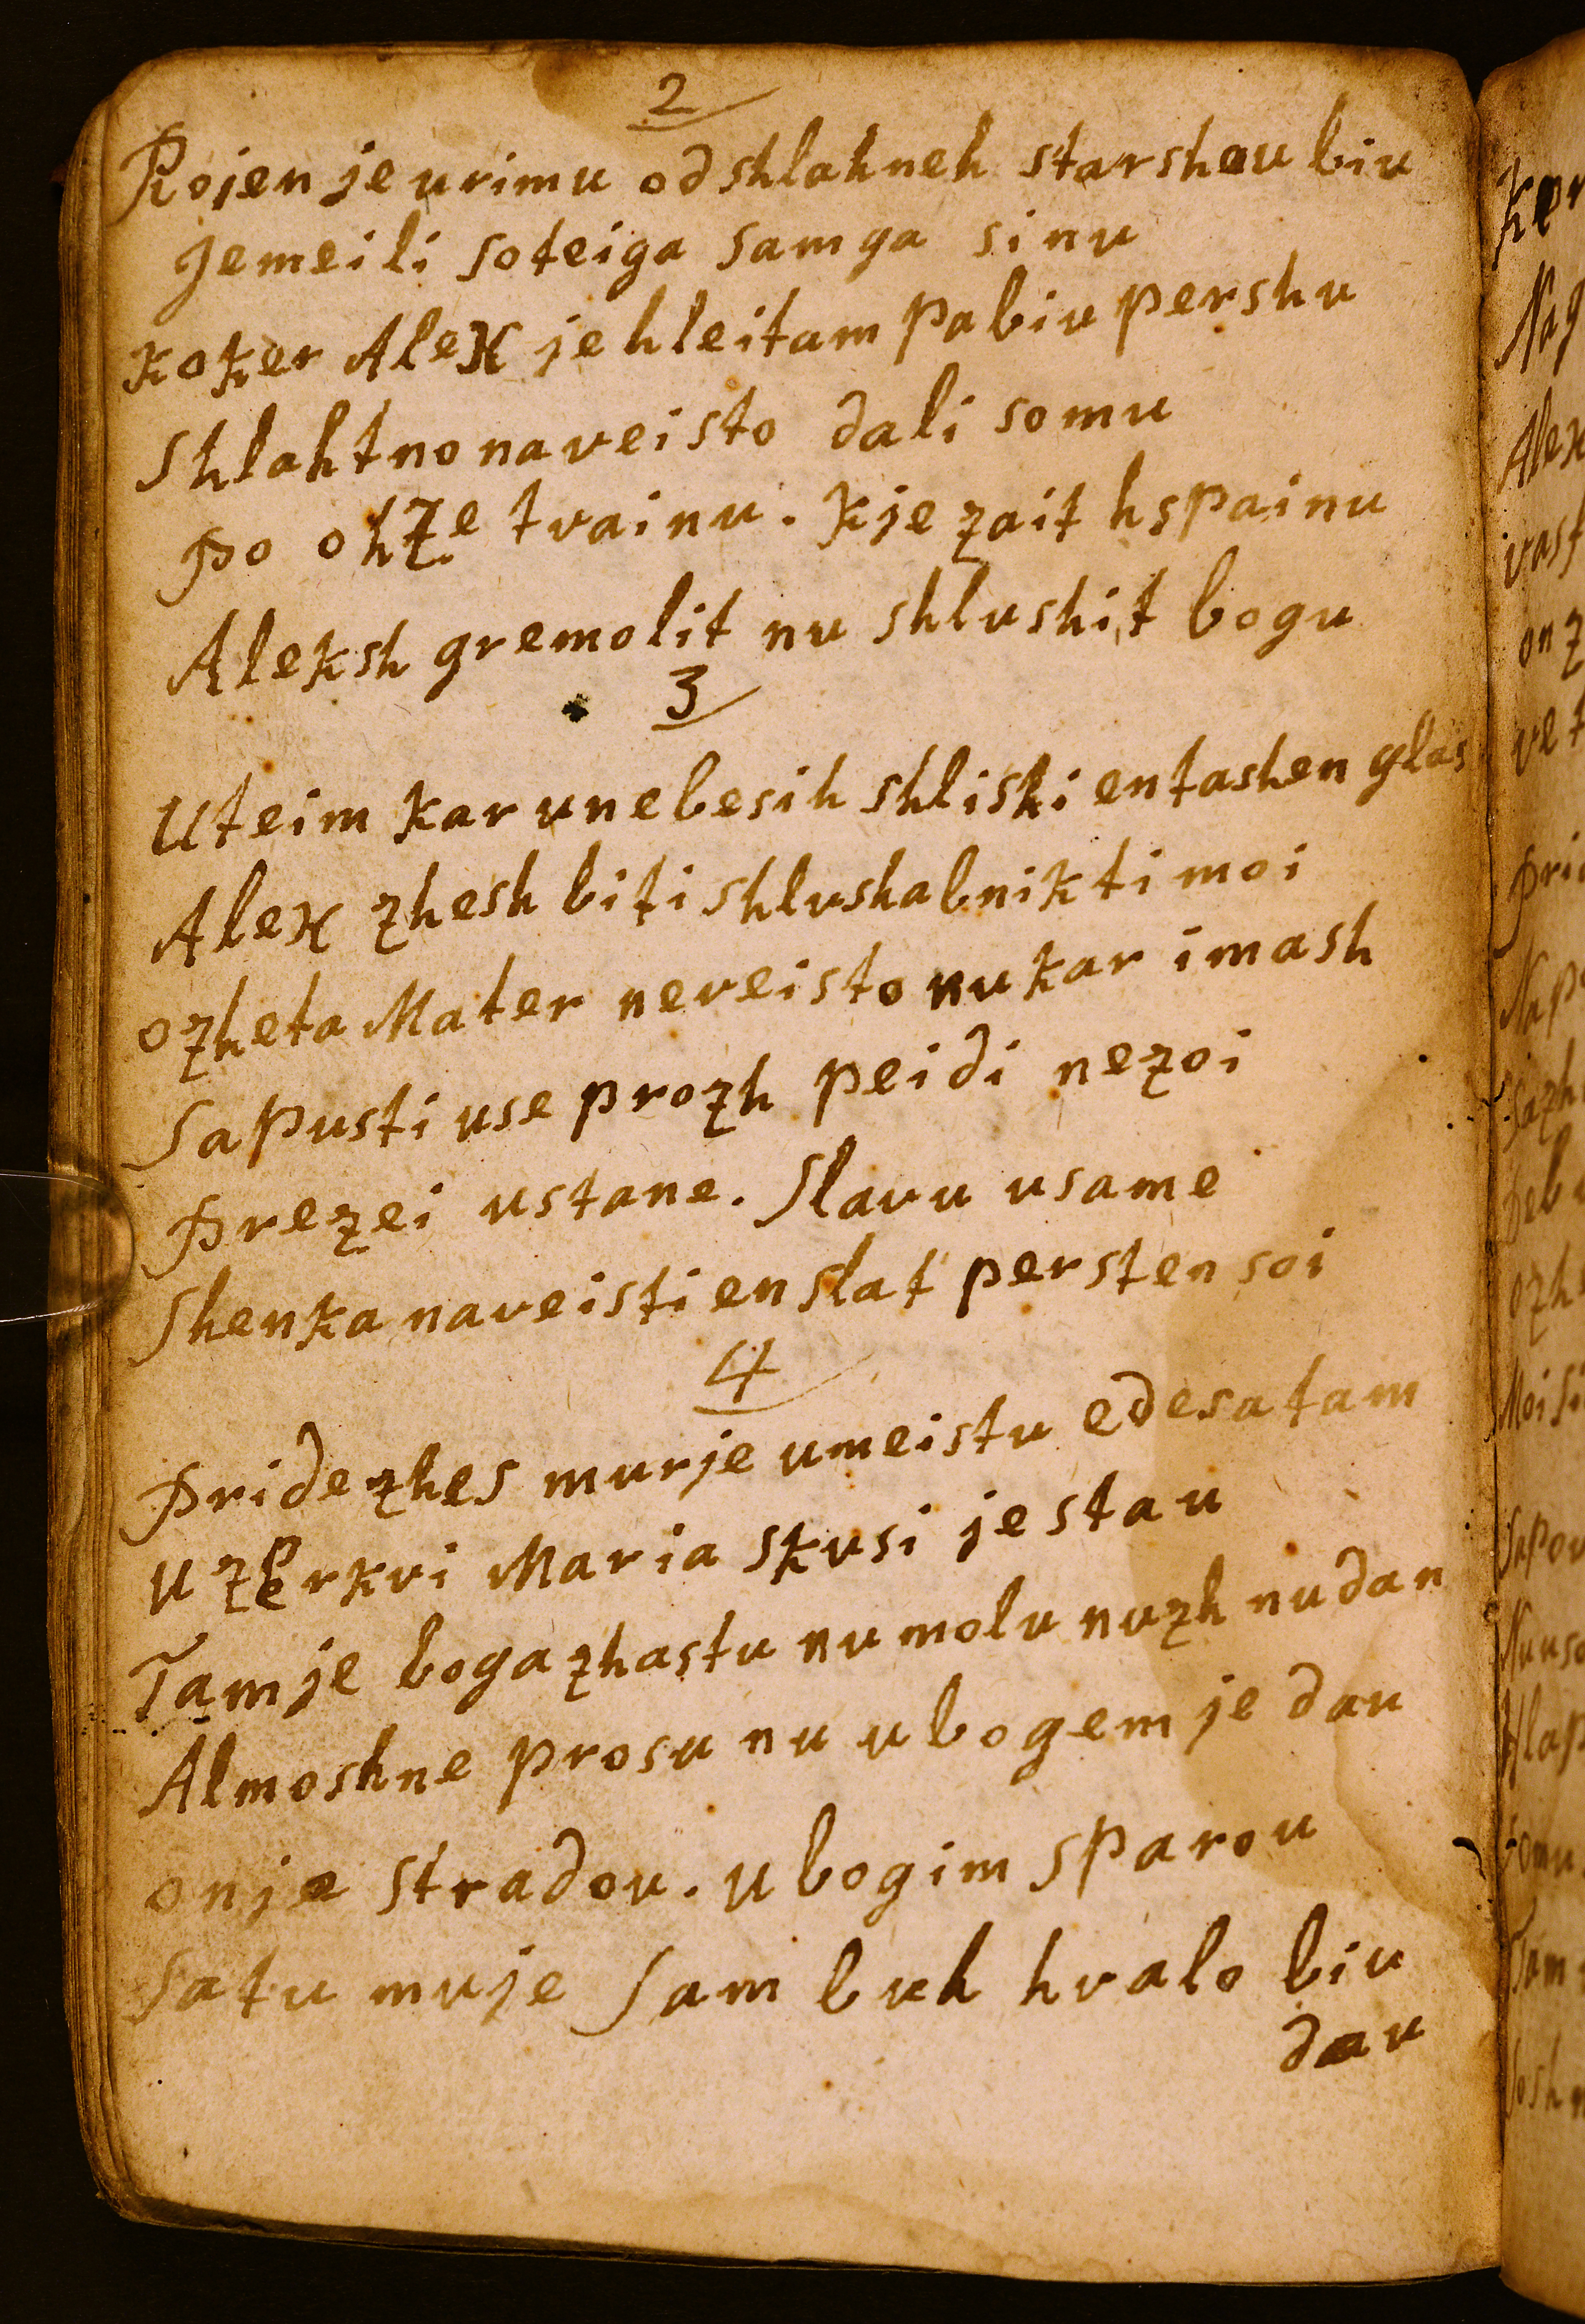 2
Rojen je urimu od shlahneh starshau biu
jemeili so teiga samga sinu
koker Alex je hleitam pa biu pershu
Shlahtno naveisto dali so mu
po ohze tvainu. kje zait hspainu
Aleksh gremolit nu shlushit bogu
3
Uteim kar unebesih shlishi en tashen glas
Alex zhesh biti shlushabnik ti moi
ozheta Mater neveisto nu kar imash
Sapusti use prozh peidi nezoi
prezei ustane. Slavu usame
Shenka naveisti en slat persten soi
4
pride zhes murje umeistu edesa tam
U zerkvi Maria skusi je stau
Tam je boga zhastu nu molu nuzh nu dan
Almoshne prosu nu ubogem je dau
on je stradou. ubogim sparou
Satu muje Sam buh hvalo biu
dau
ker
Nag
Alex
vast
on z
ve t
pri
Nap
Sazh
Deb
ozh
Moi si
Sapov
Nu uso
Hlap
Tam